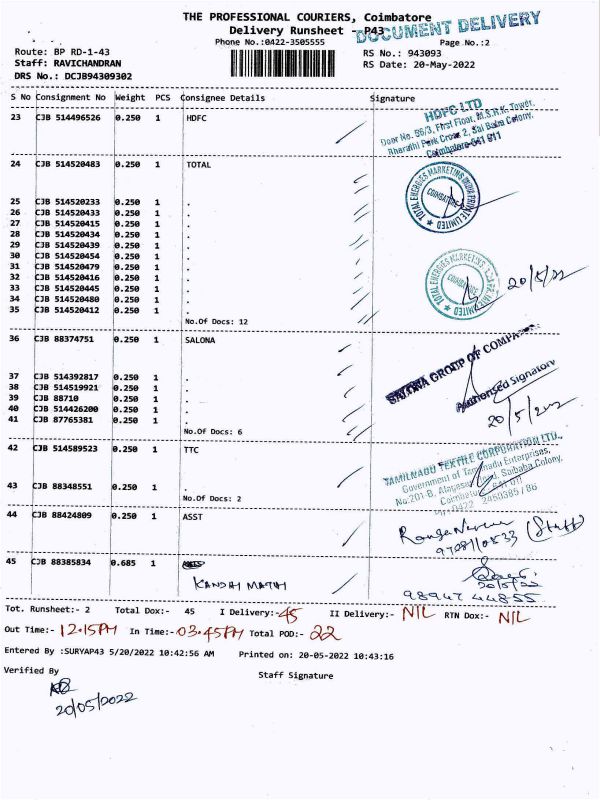 THE PROFESSIONAL COURIERS, Coimbatore
Delivery Runsheet - P43
DOCUMENT DELIVERY
Phone No.:0422-3505555 Page No.:2
Route: BP RD-1-43 RS No.: 943093
Staff: RAVICHANDRAN RS Date: 20-May-2022
DRS No.: DCJB94309302
S No Consignment No Weight PCS Consignee Details Signature
23 CJB 514496526 0.250 1 HDFC
HDFC LTD
Door No. 56/3, First Floor, M.S.R.K. Tower,
Bharathi Park Cross 2, Sai Baba Colony,
Coimbatore-641 011
24 CJB 514520483 0.250 1 TOTAL
TOTAL ENERGIES MARKETING INDIA PRIVATE LIMITED
COIMBATORE
25 CJB 514520233 0.250 1 .
26 CJB 514520433 0.250 1 .
27 CJB 514520415 0.250 1 .
28 CJB 514520434 0.250 1 .
29 CJB 514520439 0.250 1 .
30 CJB 514520454 0.250 1 .
31 CJB 514520479 0.250 1 .
32 CJB 514520416 0.250 1 .
33 CJB 514520445 0.250 1 .
34 CJB 514520480 0.250 1 .
35 CJB 514520412 0.250 1 .
20/5/22
No.Of Docs: 12
36 CJB 88374751 0.250 1 SALONA
GROUP OF
Authorised Signatory
37 CJB 514392817 0.250 1 .
38 CJB 514519921 0.250 1 .
39 CJB 88710 0.250 1 .
40 CJB 514426200 0.250 1 .
41 CJB 87765381 0.250 1 .
No.Of Docs: 6
42 CJB 514589523 0.250 1 TTC
TAMILNADU TEXTILE CORPORATION LTD.,
Government of Tamilnadu Enterprises,
No.201-B, Saibaba Colony,
43 CJB 88348551 0.250 1 .
No.Of Docs: 2
44 CJB 88424809 0.250 1 ASST
(Staff)
45 CJB 88385834 0.685 1
20/5/22
98947 44855
Tot. Runsheet:- 2 Total Dox:- 45 I Delivery:- 45 II Delivery:- NIL RTN Dox:- NIL
Out Time:- 12.15PM In Time:- 03.45PM Total POD:- 22
Entered By :SURYAP43 5/20/2022 10:42:56 AM Printed on: 20-05-2022 10:43:16
Verified By Staff Signature
20/05/2022